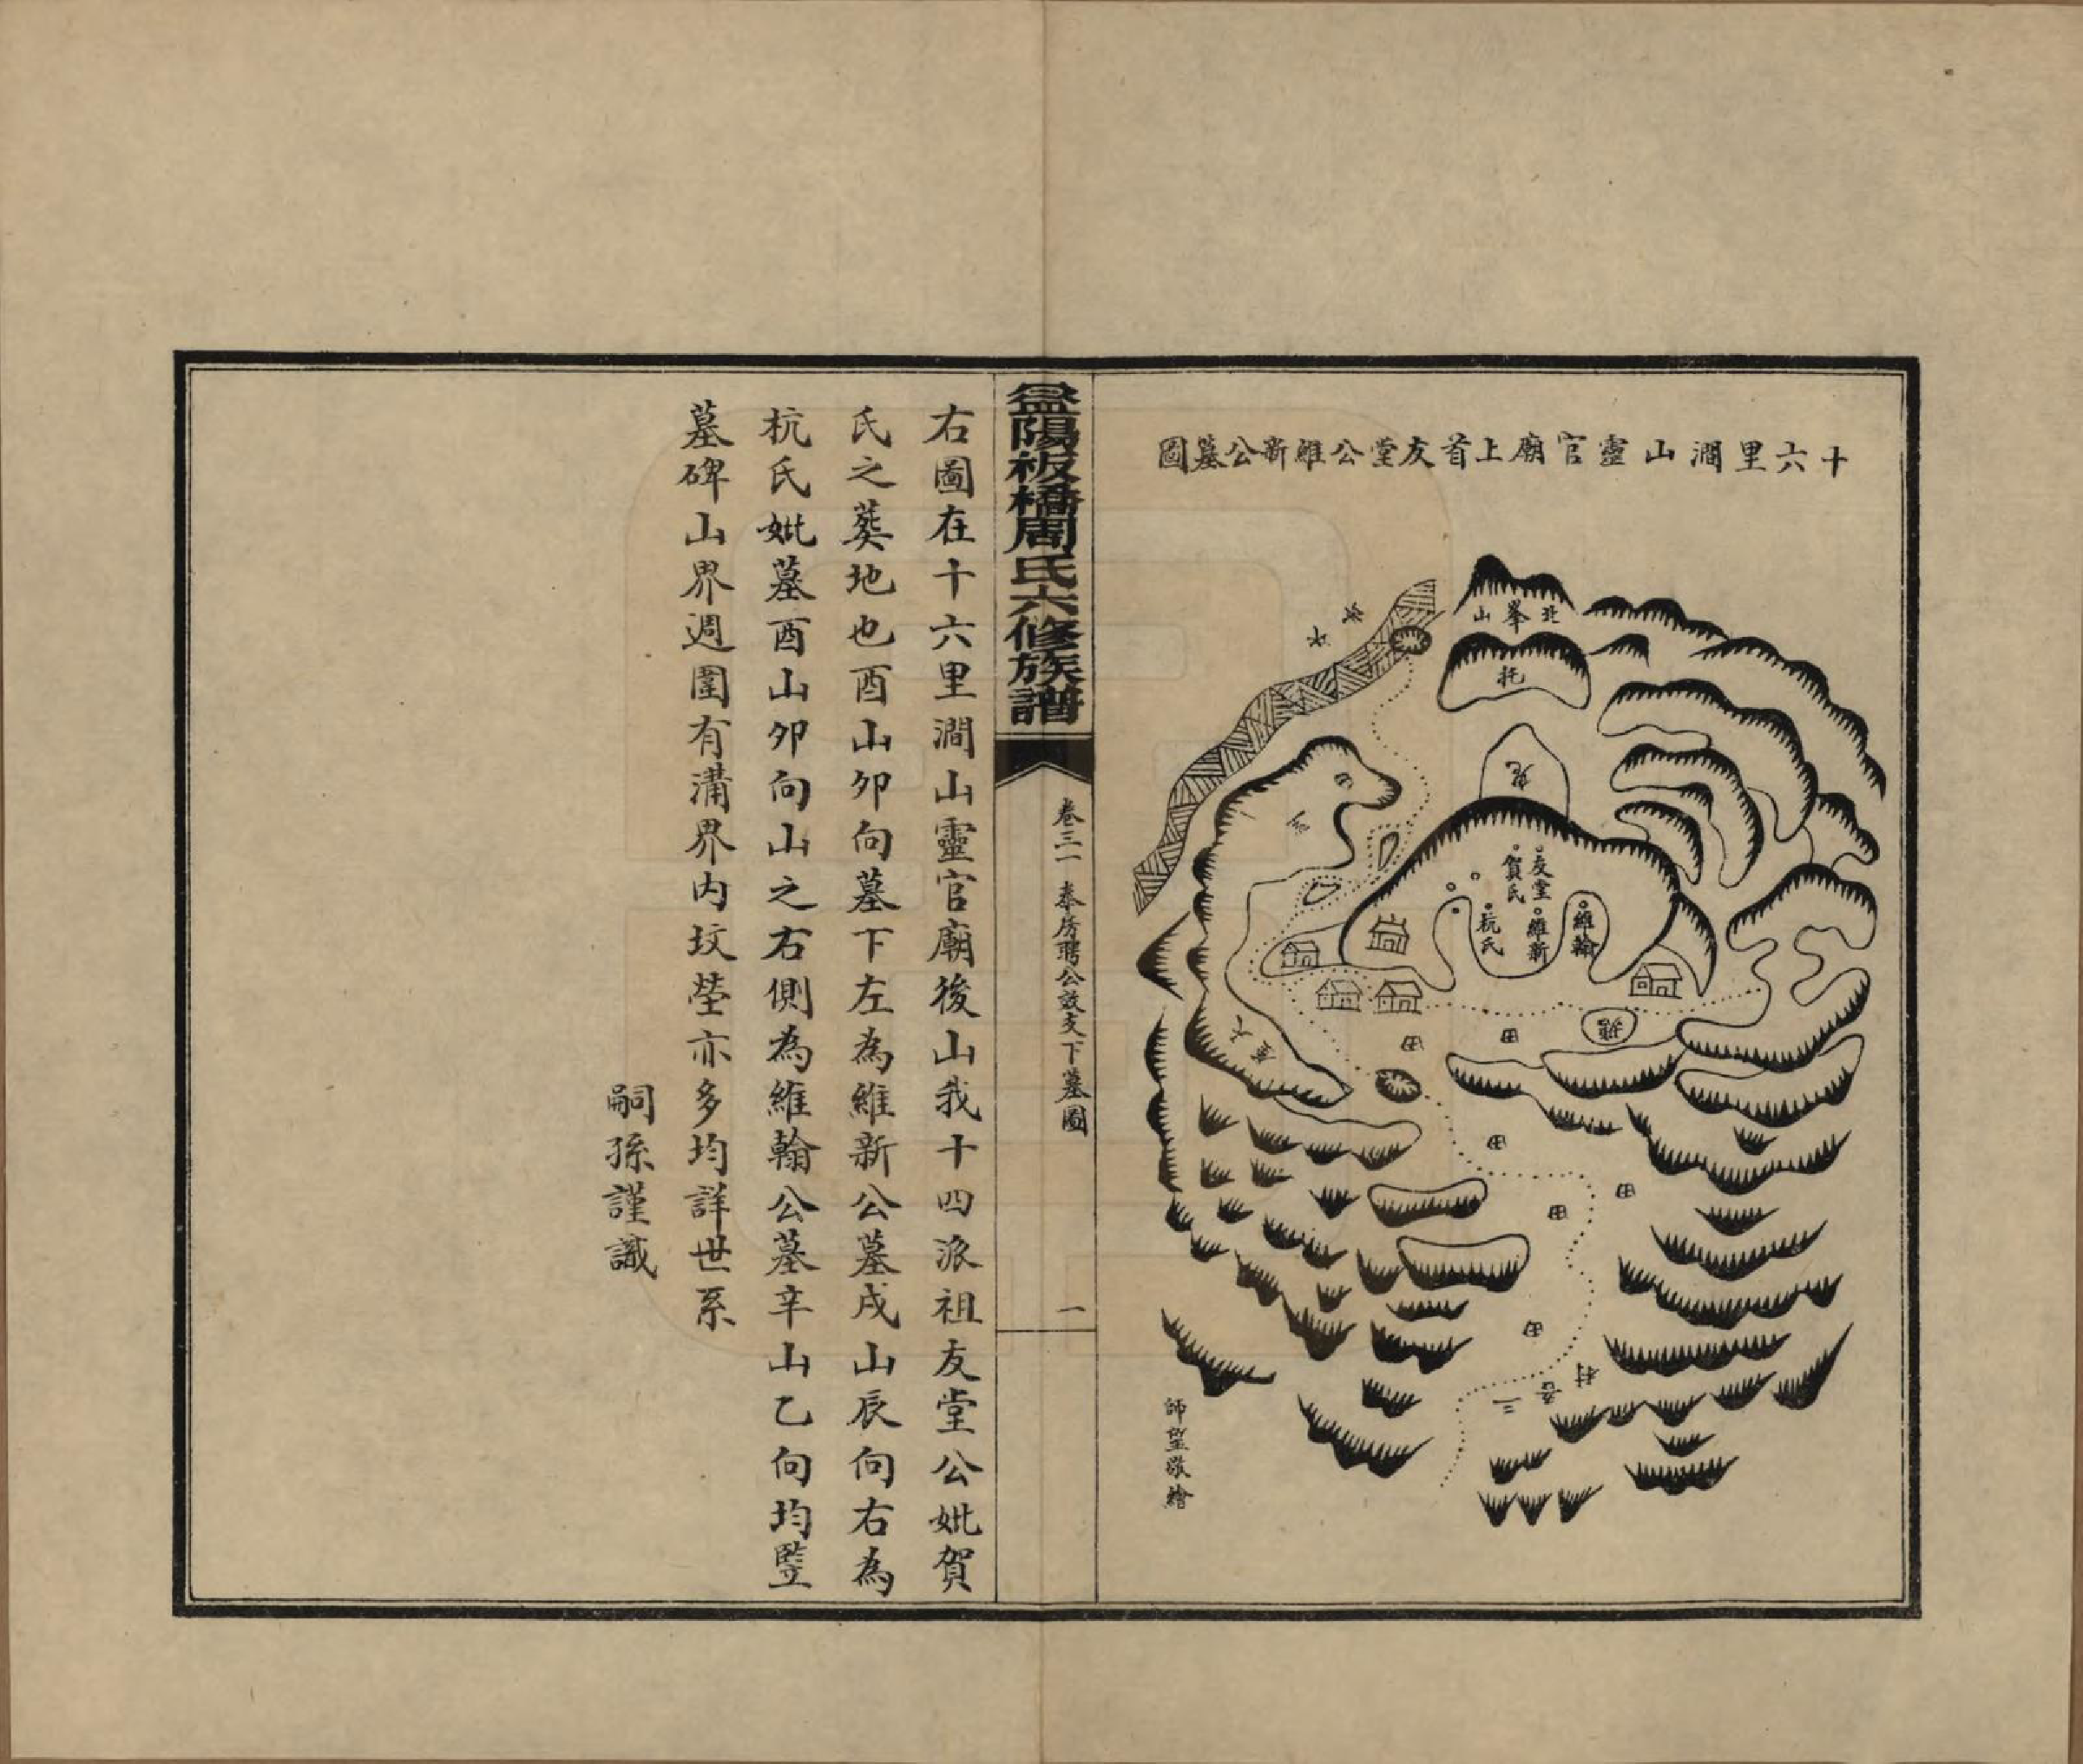 十六里澗山靈官廟上首友堂公維新公墓圖
北峯山
托
友堂
賀氏
維新
杭氏
維翰
塘
田
田
田
田
田
田
三
村
師望敬繪
益陽板橋周氏六修族譜
卷三一 奉房聘公效支下墓圖
一
右圖在十六里澗山靈官廟後山我十四派祖友堂公妣賀
氏之葬地也酉山卯向墓下左為維新公墓戌山辰向右為
杭氏妣墓酉山卯向山之右側為維翰公墓辛山乙向均豎
墓碑山界週圍有溝界內坟塋亦多均詳世系
嗣孫謹識